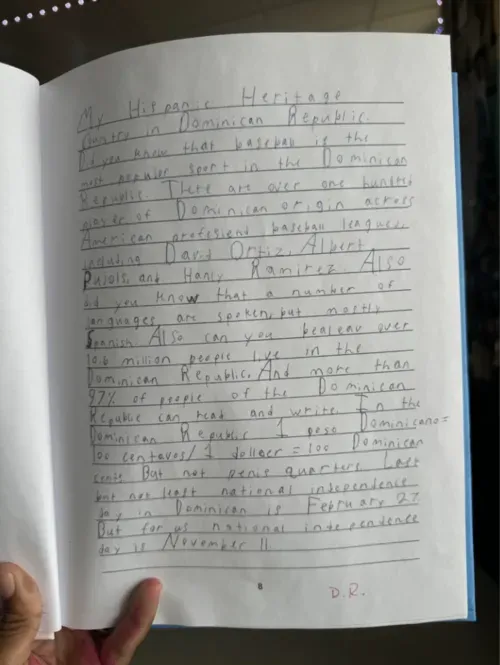 My Hispanic Heritage
Country in Dominican Republic.
Did you know that baseball is the
most popular sport in the Dominican
Republic. There are over one hundred
of Dominican origin across
American baseball leagues,
including David Ortiz, Albert
Pujols, and Hanly Ramirez. Also
did you know that a number of
languages are spoken, but mostly
Spanish Also can you over
10.6 million people live in the
Dominican Republic. And more than
97% of people of the Dominican
Republic can read and write. In the
Dominican Republic 1 peso Dominicano =
100 centavos/ 1 = 100 Dominican
cents But not penis quarters Last
but not least national independence
day in Dominican is February 27
But for us national independence
day is November 11.
8
D.R.